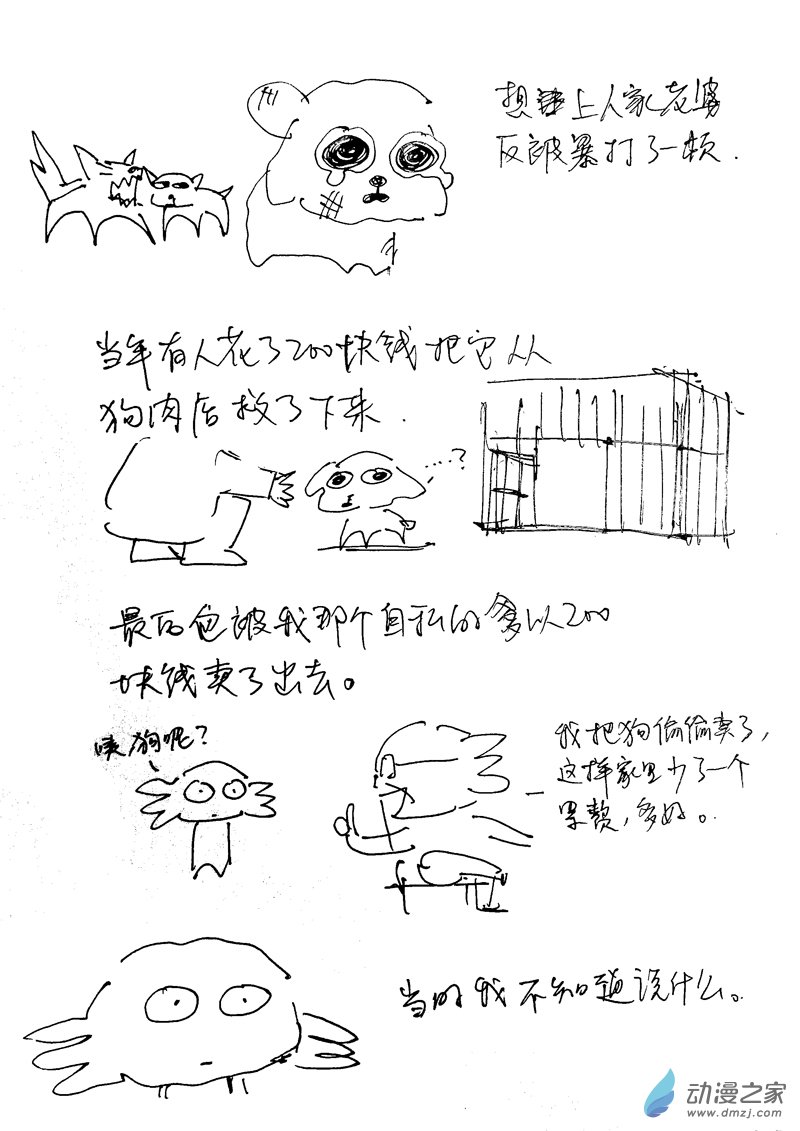 想上人家老婆
反被暴打了一顿.
当年有人花了200块钱把它从
狗肉店救了下来.
...?
最后也被我那个自私的爹以200
块钱卖了出去。
咦狗呢?
我把狗偷偷卖了,
这样家里少了一个
累赘,多好。
当时我不知道说什么。
动漫之家
www.dmzj.com